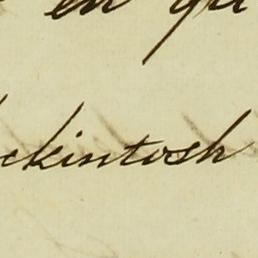 en qu
ckintosh